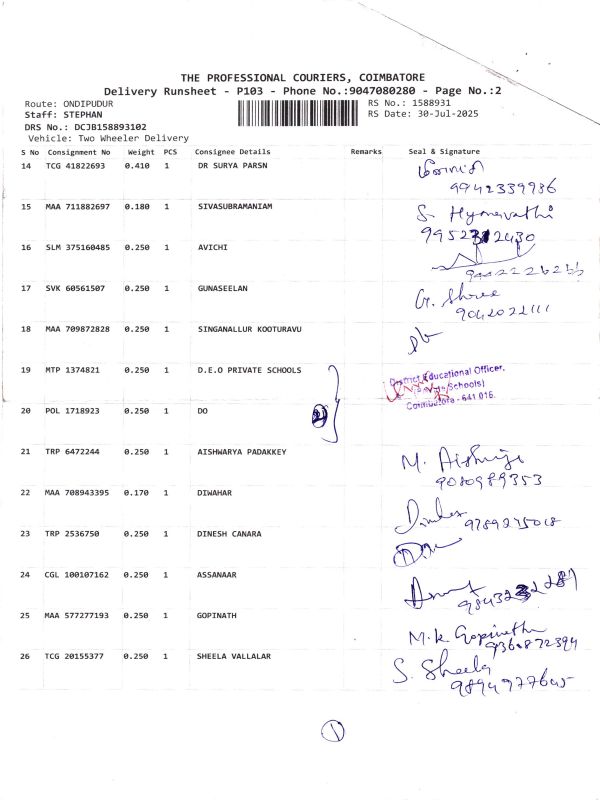 THE PROFESSIONAL COURIERS, COIMBATORE
Delivery Runsheet - P103 - Phone No.:9047080280 - Page No.:2
Route: ONDIPUDUR
Staff: STEPHAN
DRS No.: DCJB158893102
Vehicle: Two Wheeler Delivery
RS No.: 1588931
RS Date: 30-Jul-2025
S No Consignment No Weight PCS Consignee Details Remarks Seal & Signature
14 TCG 41822693 0.410 1 DR SURYA PARSN
9942339936
15 MAA 711882697 0.180 1 SIVASUBRAMANIAM S. Hymavathi
16 SLM 375160485 0.250 1 AVICHI
17 SVK 60561507 0.250 1 GUNASEELAN G. Shree
9042022111
18 MAA 709872828 0.250 1 SINGANALLUR KOOTURAVU
19 MTP 1374821 0.250 1 D.E.O PRIVATE SCHOOLS District Educational Officer,
Schools)
Coimbatore - 641 016.
20 POL 1718923 0.250 1 DO
21 TRP 6472244 0.250 1 AISHWARYA PADAKKEY M.
9080989353
22 MAA 708943395 0.170 1 DIWAHAR
9789275018
23 TRP 2536750 0.250 1 DINESH CANARA
24 CGL 100107162 0.250 1 ASSANAAR
25 MAA 577277193 0.250 1 GOPINATH M.K Gopinath
9360872394
26 TCG 20155377 0.250 1 SHEELA VALLALAR S. Sheela
9894977645
1